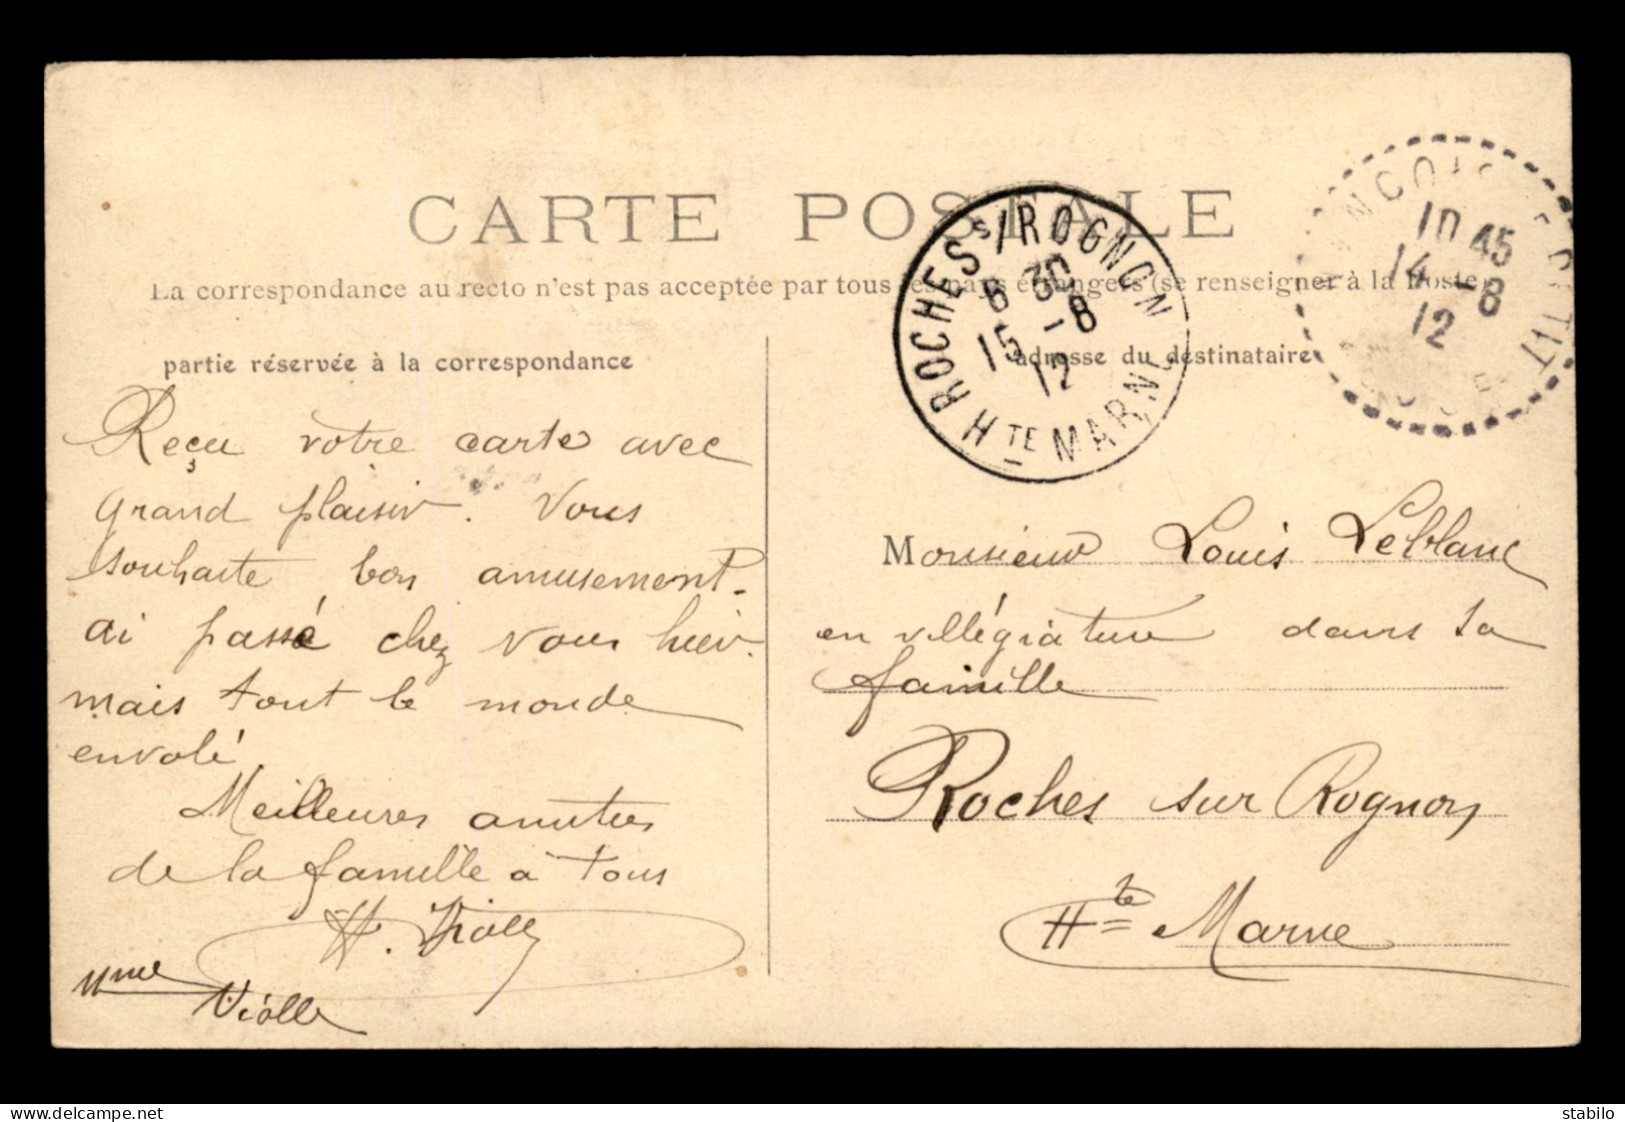 CARTE POSTALE
La correspondance au recto n'est pas acceptée par tous les pays étrangers (se renseigner à la Poste)
partie réservée à la correspondance
adresse du destinataire
ROCHES S/ROGNON
6 30
15 - 8
12
HTE MARNE
10 45
14 - 8
12
Reçu votre carte avec
grand plaisir. Vous
souhaite bon amusement.
ai passé chez vous hier.
mais tout le monde
envolé
Meilleures amitiés
de la famille à tous
H. Violle
Mme Violle
Monsieur Louis Leblanc
en villégiature dans sa
famille
Roches sur Rognon
Hte Marne
delcampe.net
stabilo